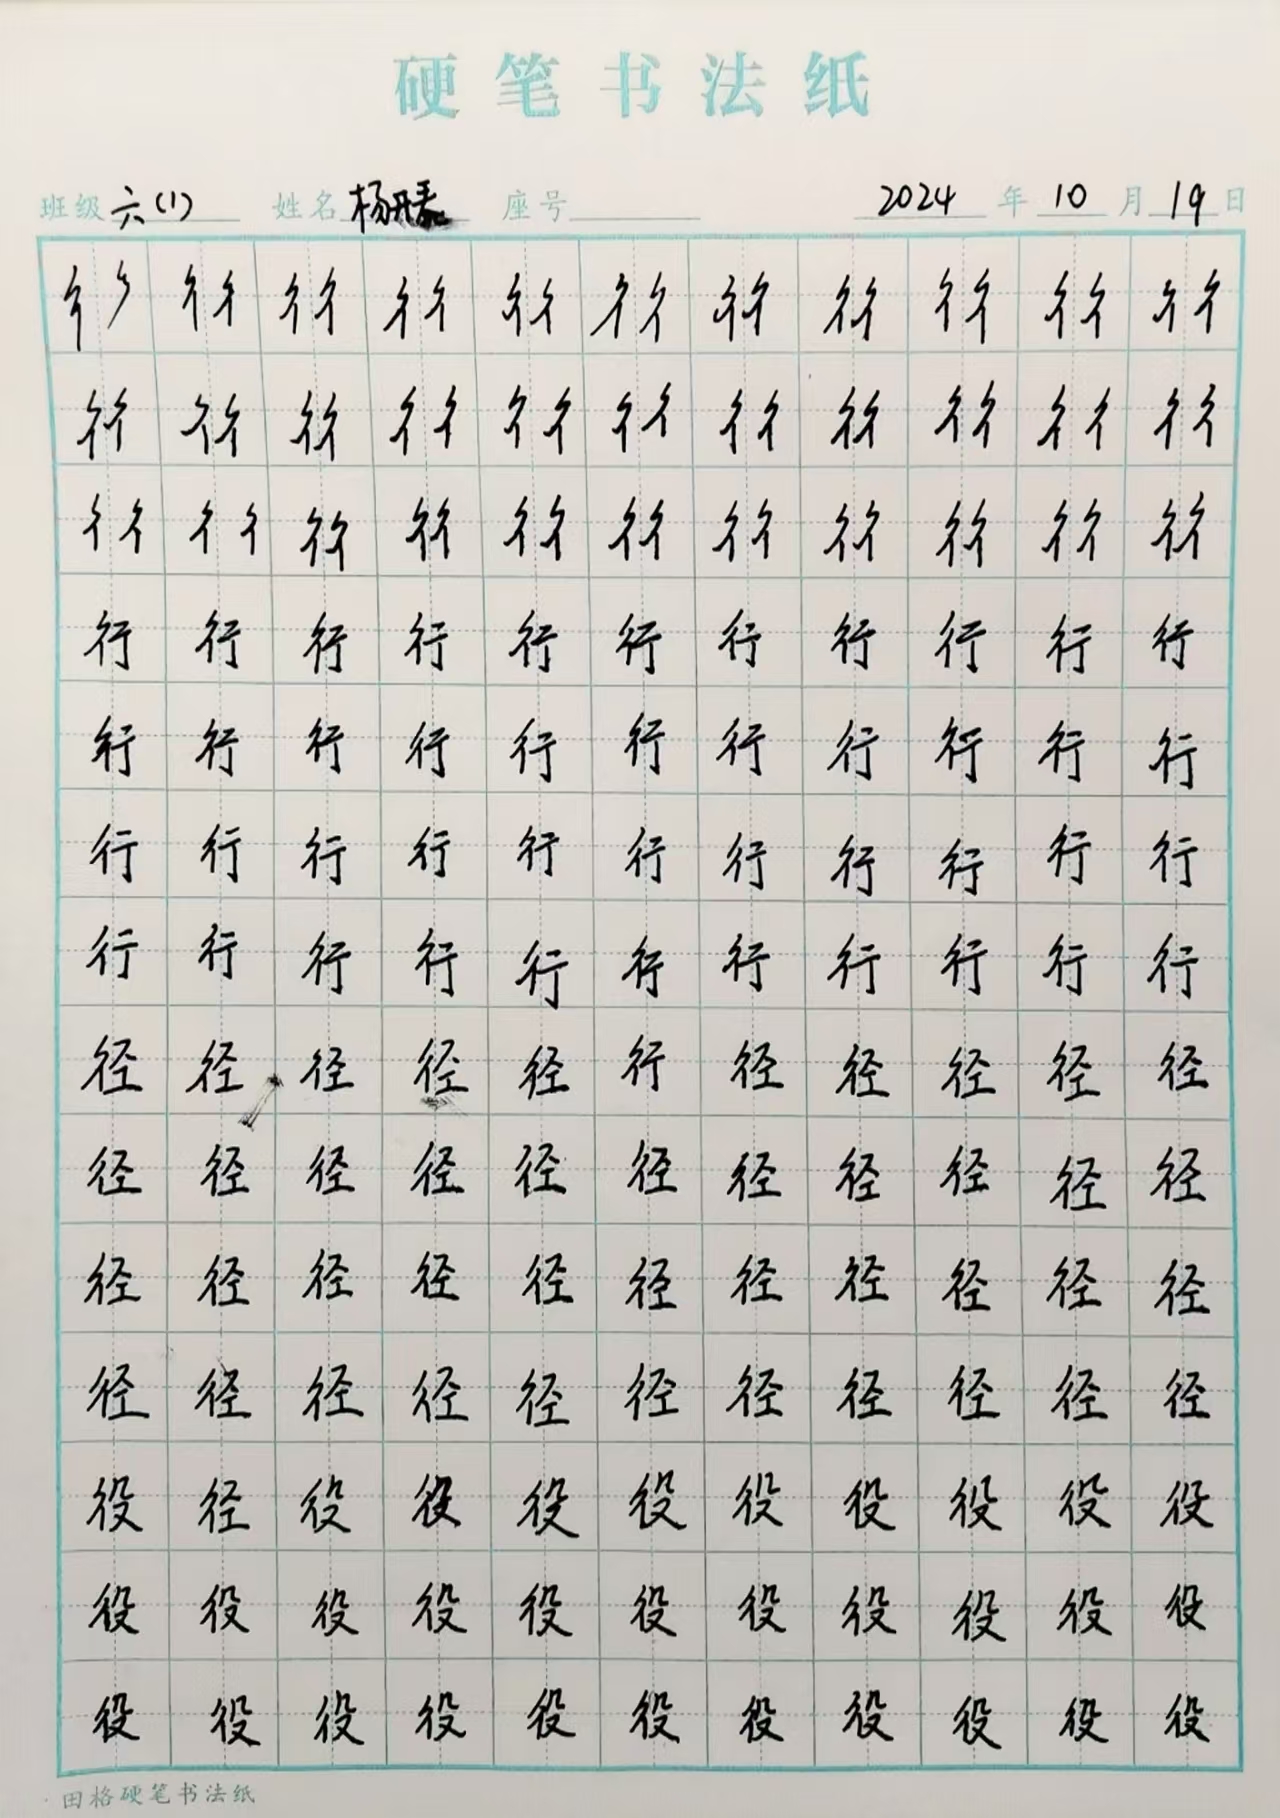 硬笔书法纸
班级 六(1) 姓名 杨 座号 2024 年 10 月 19 日
彳彳 彳彳 彳彳 彳彳 彳彳 彳彳 彳彳 彳彳 彳彳 彳彳 彳彳
彳彳 彳彳 彳彳 彳彳 彳彳 彳彳 彳彳 彳彳 彳彳 彳彳 彳彳
彳彳 彳彳 彳彳 彳彳 彳彳 彳彳 彳彳 彳彳 彳彳 彳彳 彳彳
行 行 行 行 行 行 行 行 行 行 行
行 行 行 行 行 行 行 行 行 行 行
行 行 行 行 行 行 行 行 行 行 行
行 行 行 行 行 行 行 行 行 行 行
径 径 径 径 径 行 径 径 径 径 径
径 径 径 径 径 径 径 径 径 径 径
径 径 径 径 径 径 径 径 径 径 径
径 径 径 径 径 径 径 径 径 径 径
役 径 役 役 役 役 役 役 役 役 役
役 役 役 役 役 役 役 役 役 役 役
役 役 役 役 役 役 役 役 役 役 役
·田格硬笔书法纸